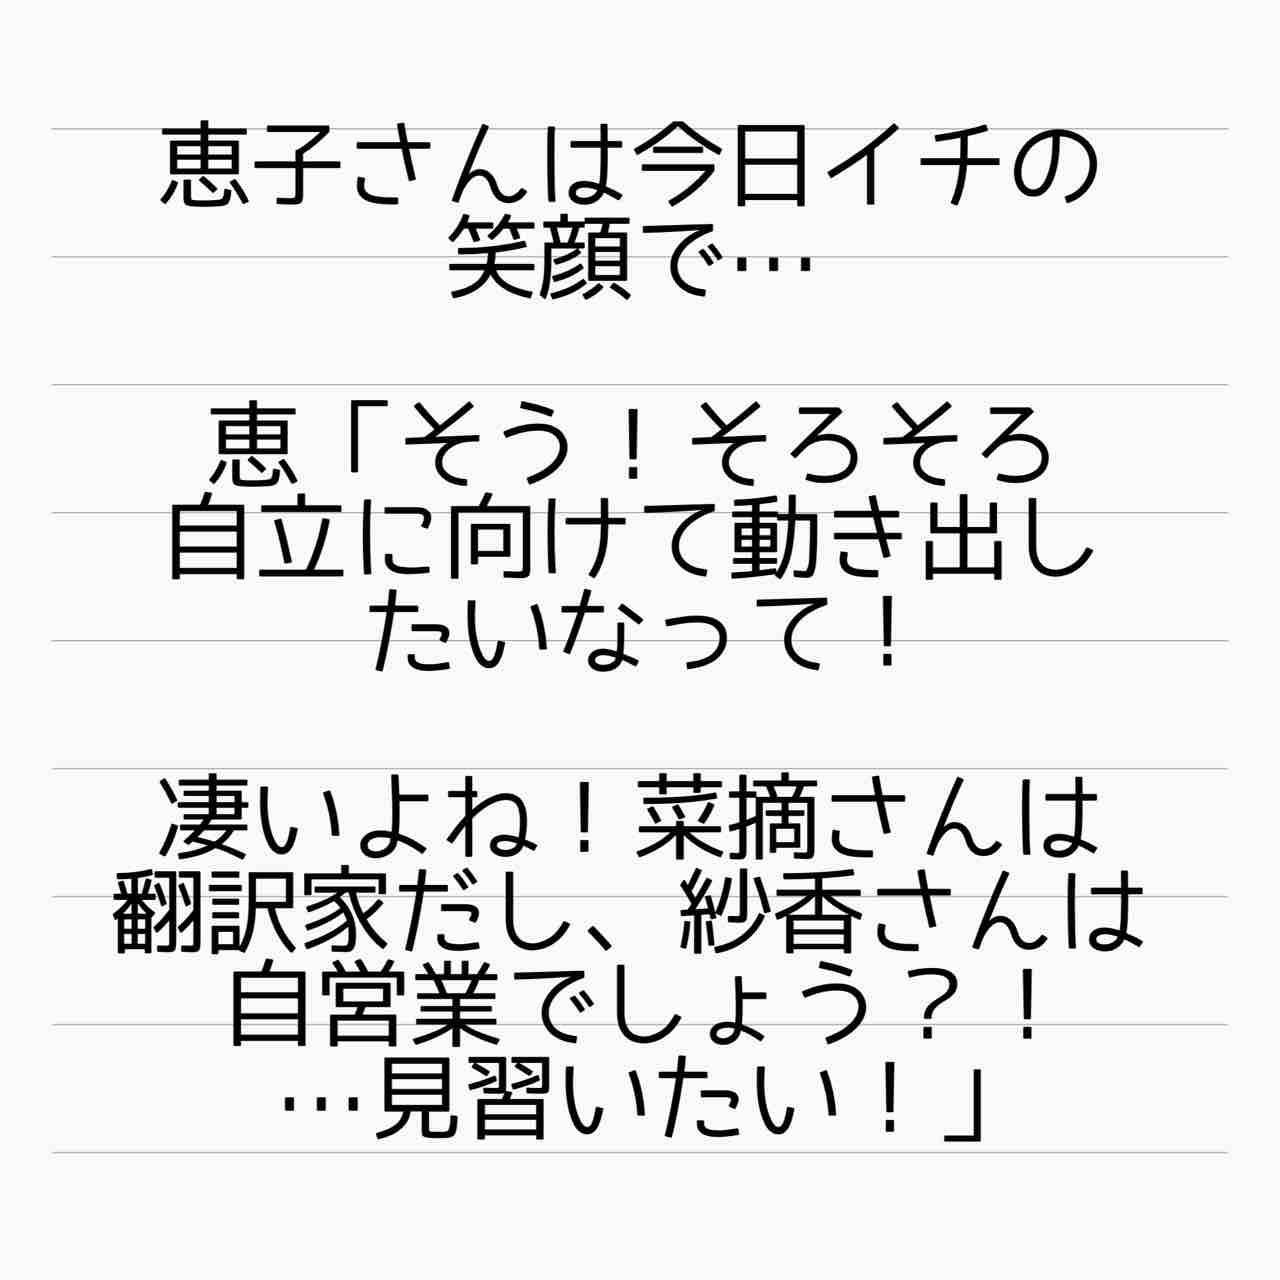 恵子さんは今日イチの
笑顔で…
恵「そう！そろそろ
自立に向けて動き出し
たいなって！
凄いよね！菜摘さんは
翻訳家だし、紗香さんは
自営業でしょう？！
…見習いたい！」